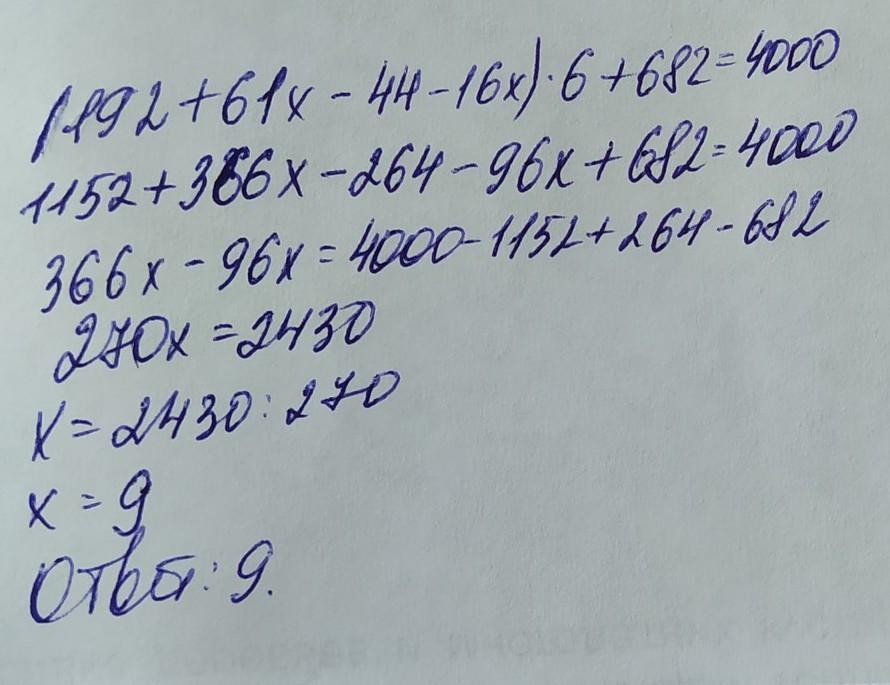 (192 + 61x - 44 - 16x) · 6 + 682 = 4000
1152 + 366x - 264 - 96x + 682 = 4000
366x - 96x = 4000 - 1152 + 264 - 682
270x = 2430
x = 2430 : 270
x = 9
Ответ: 9.